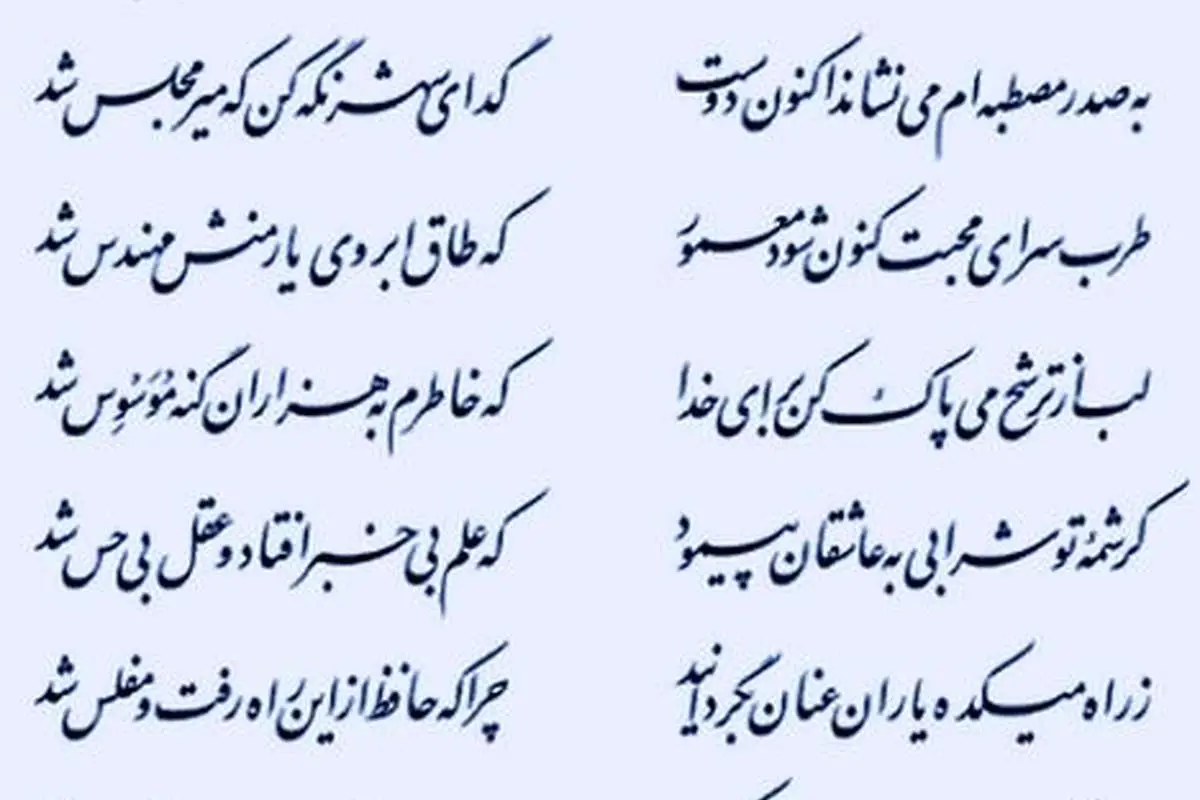 به صدر مصطبه ام می نشاند اکنون دوست گدای شهر نگه کن که میر مجلس شد
طرب سرای محبت کنون شود معمور که طاق ابروی یار منش مهندس شد
لب از ترشح می پاک کن برای خدا که خاطرم به هزاران گنه مُوَسْوِس شد
کرشمهٔ تو شرابی به عاشقان پیمود که علم بی خبر افتاد و عقل بی حس شد
ز راه میکده یاران عنان بگردانید چرا که حافظ از این راه رفت و مفلس شد